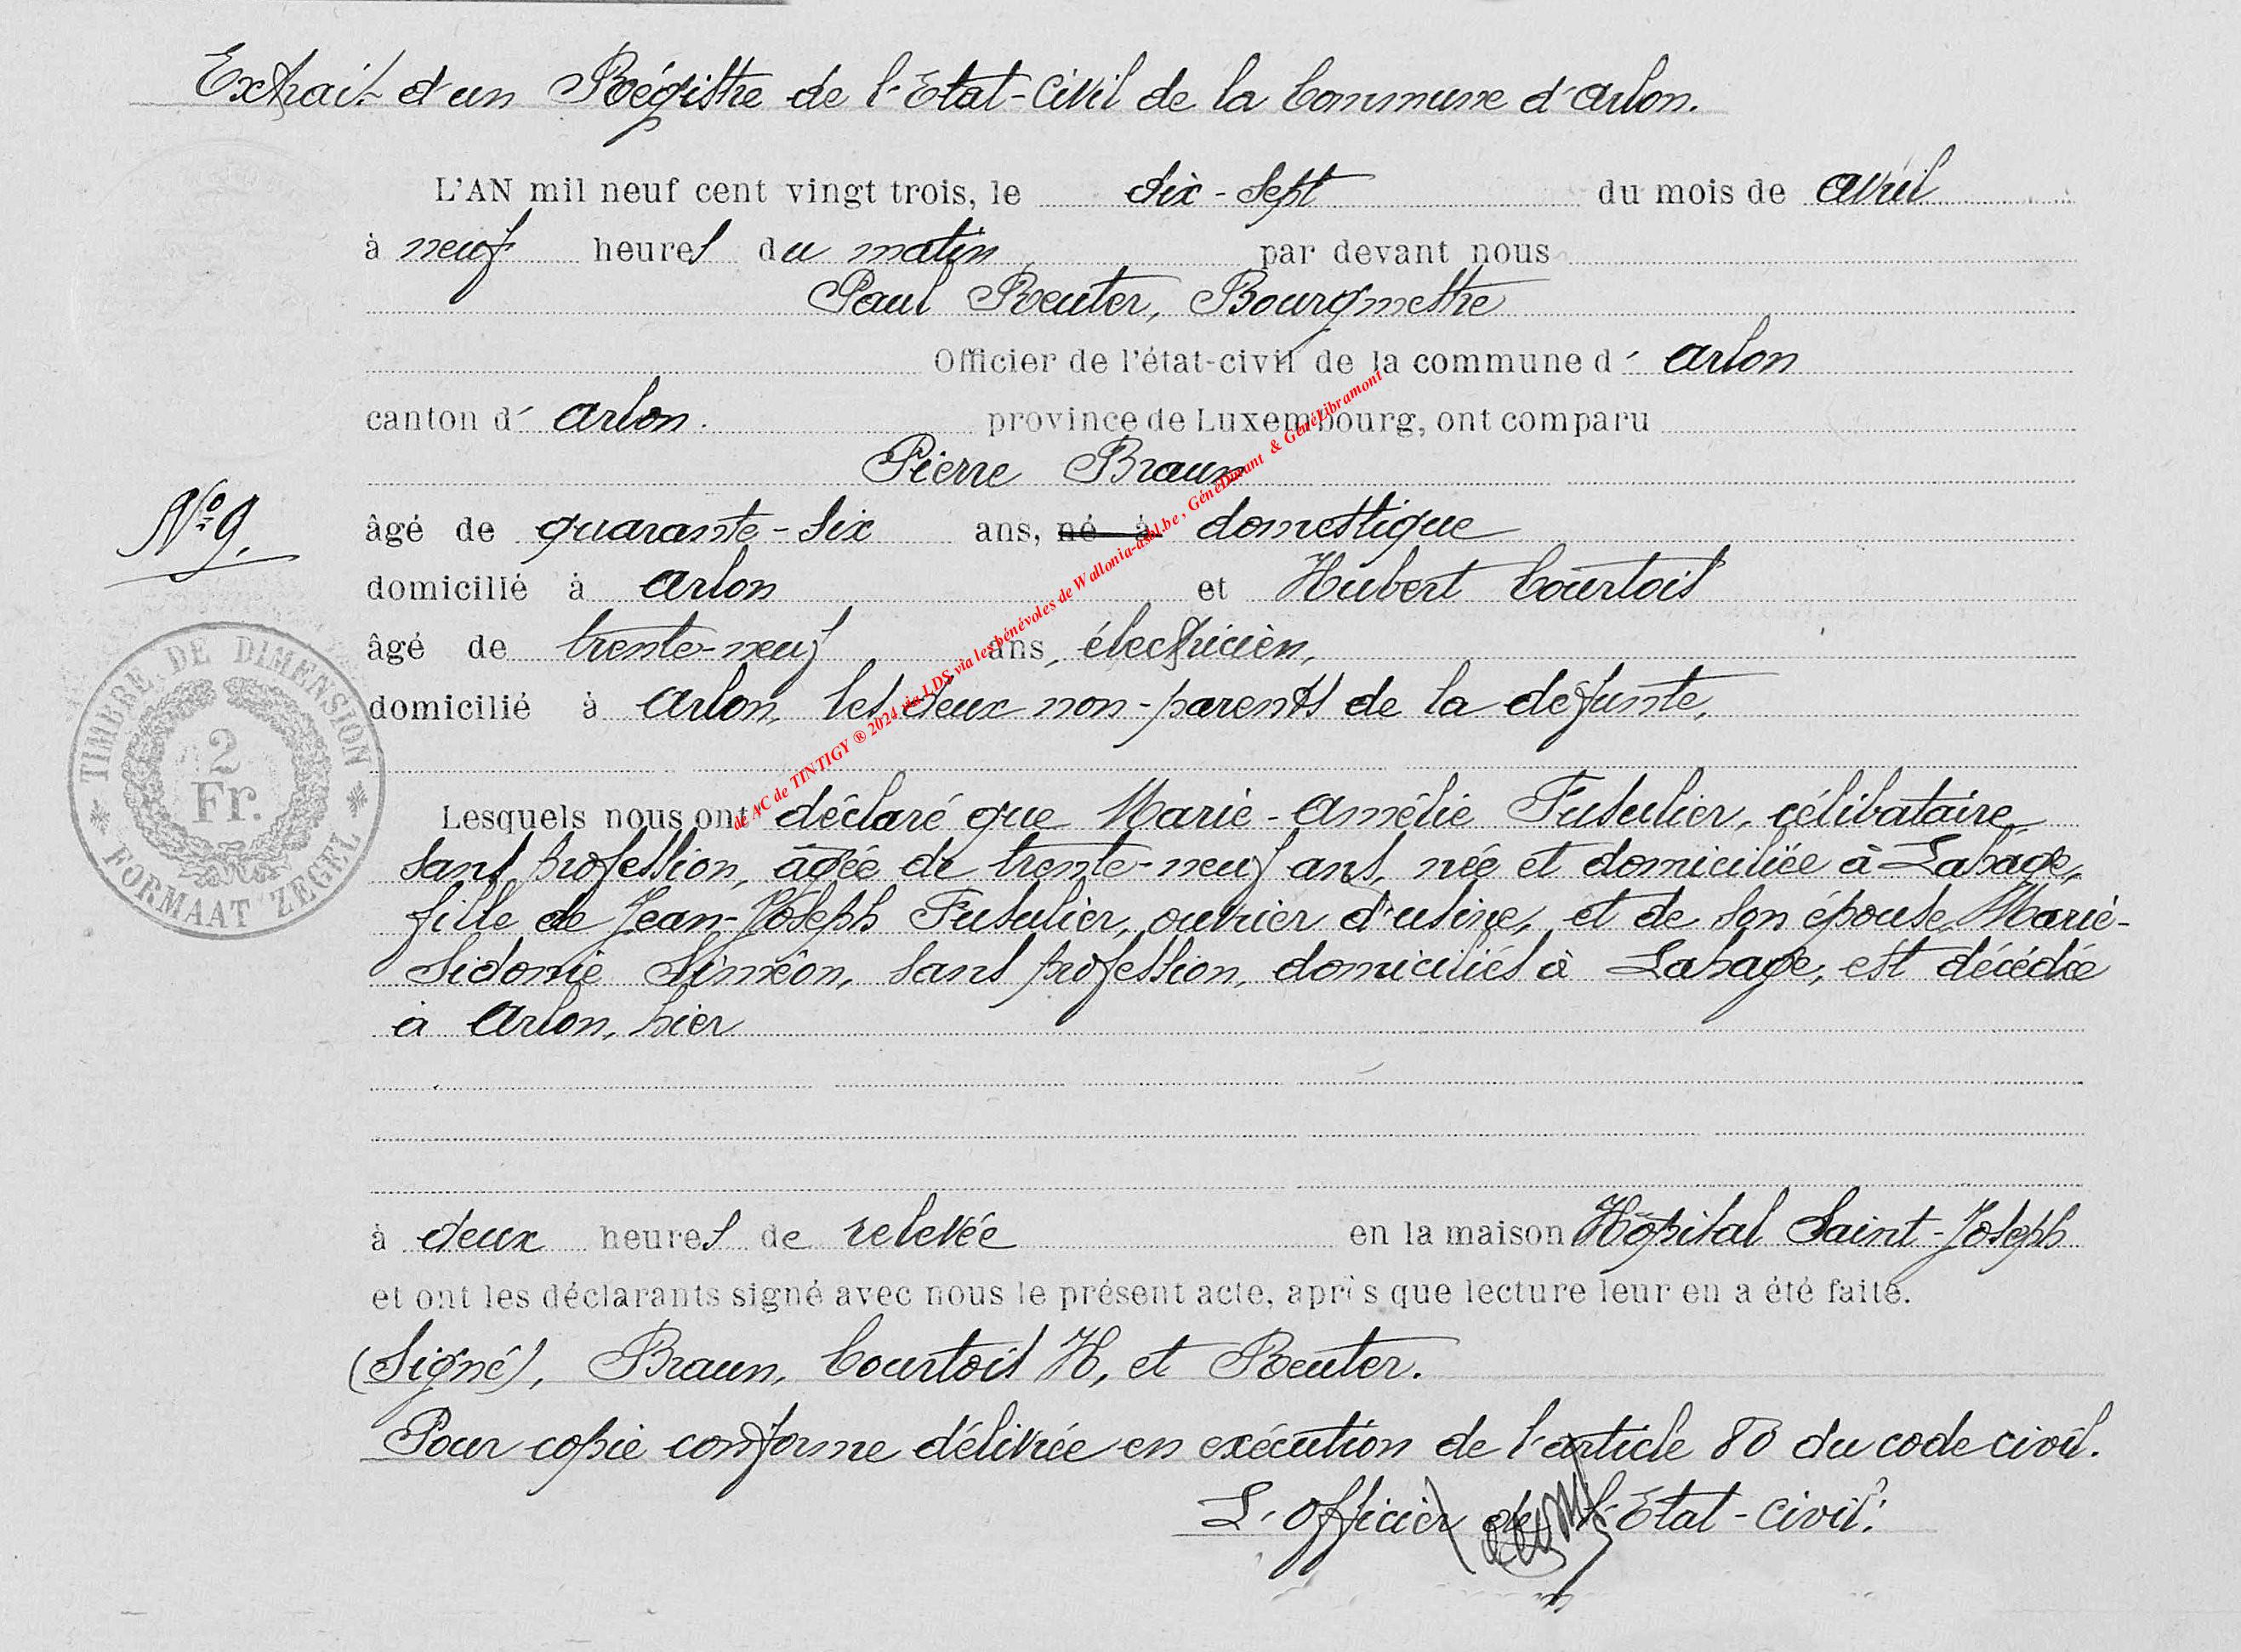 Extrait d'un Régistre de l'Etat-Civil de la Commune d'Arlon.
L'AN mil neuf cent vingt trois, le dix-sept du mois de avril
à neuf heures du matin par devant nous
Paul Reuter, Bourgmestre
Officier de l'état-civil de la commune d' Arlon
canton d' Arlon. province de Luxembourg, ont comparu
Pierre Braun
N° 9.
âgé de quarante-six ans, né à domestique
domicilié à Arlon et Hubert Courtois
âgé de trente-neuf ans, électricien,
domicilié à Arlon, les deux non-parents de la défunte,
TIMBRE DE DIMENSION
2
Fr.
FORMAAT ZEGEL
Lesquels nous ont déclaré que Marie-Amélie Fusulier, célibataire,
sans profession, âgée de trente-neuf ans, née et domiciliée à Lahage,
fille de Jean-Joseph Fusulier, ouvrier d'usine, et de son épouse, Marie-
Sidonie Siméon, sans profession, domiciliés à Lahage, est décédée
à Arlon, hier
à deux heures de relevée en la maison Hôpital Saint-Joseph
et ont les déclarants signé avec nous le présent acte, après que lecture leur en a été faite.
(Signé), Braun, Courtois H, et Reuter.
Pour copie conforme délivrée en exécution de l'article 80 du code civil.
L'Officier de l'Etat-Civil:
de AC de TINTIGY ® 2024 via LDS via les bénévoles de Wallonia-asbl.be, GénéDinant & GénéLibramont